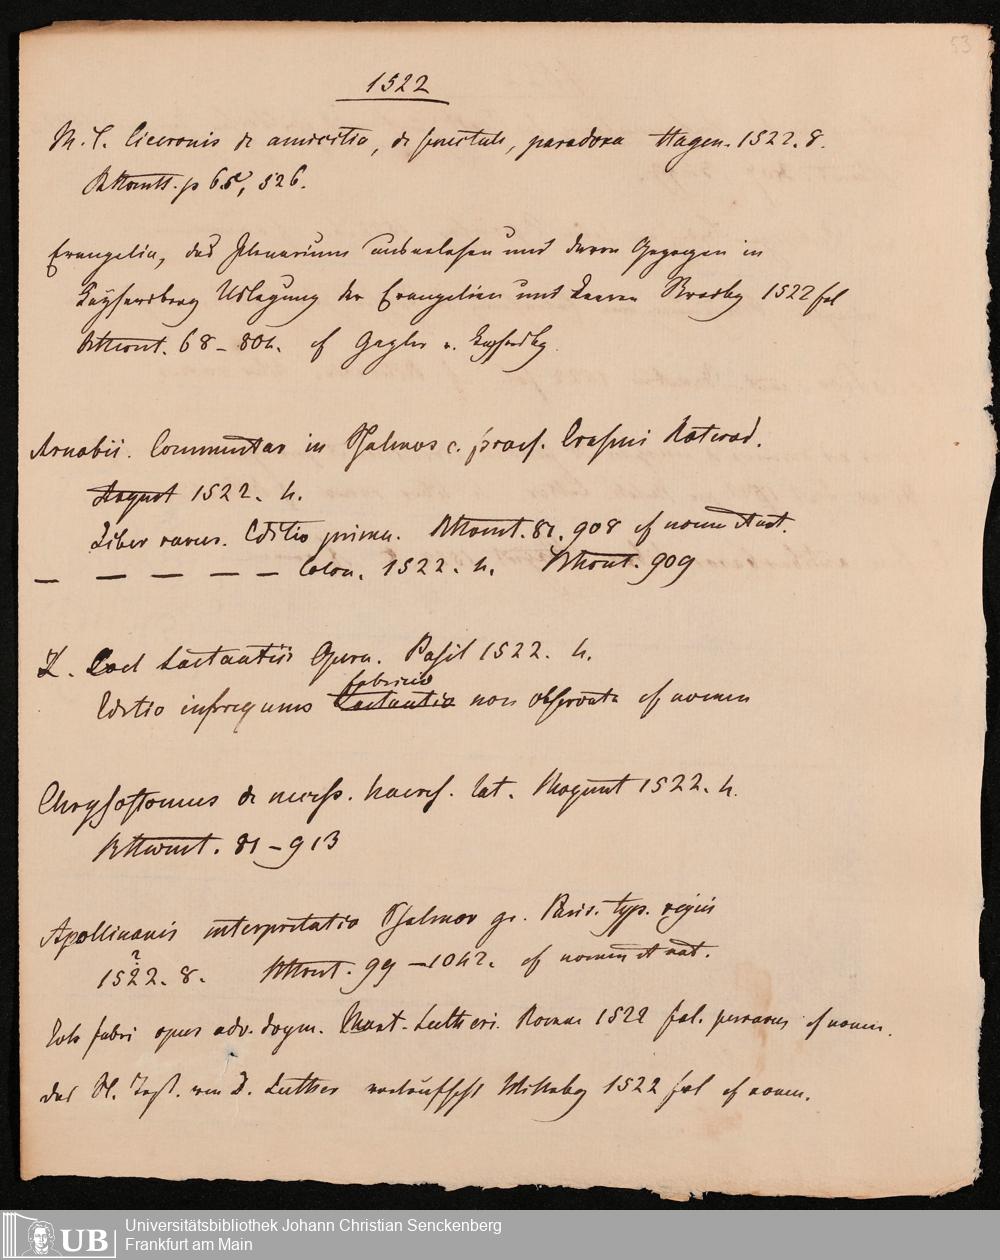 53
1522
M. T. Ciceronis de amicitia, de senectute, paradoxa Hagen. 1522. 8.
p 65, 526.
Evangelia, das Plenarium usserlesen und davon Gezogen in
Keysersberg Uslegung der Evangelien und Leeren Strasbg 1522 fol
68 – 804. cf Geyler v. Keysersbg
Arnobii. Commentar in Psalmos c. praef. Erasmi Roterod.
August 1522. 4.
Liber rarus. Editio prima. 81. 908 cf nomen Aut.
— — — — — Colon. 1522. 4. 909
L. Coel Lactantii Opera. Basil 1522. 4.
Fabricio
Editio infrequens Lactantio non observata cf nomen
Chrysostomus de haeres. lat. Mogunt 1522. 4.
81 – 913
Apollinaris interpretatio Psalmor gr. Paris. typ. regiis
?
1522. 8. 99 – 1042. cf nomen Aut.
Joh Fabri opus adv. dogm. Mart. Lutheri. Romae 1522 fol. perrarus cf nomen.
das N. Test. von D. Luther verteutscht Wittebg 1522 fol cf nomen.
UB
Universitätsbibliothek Johann Christian Senckenberg
Frankfurt am Main